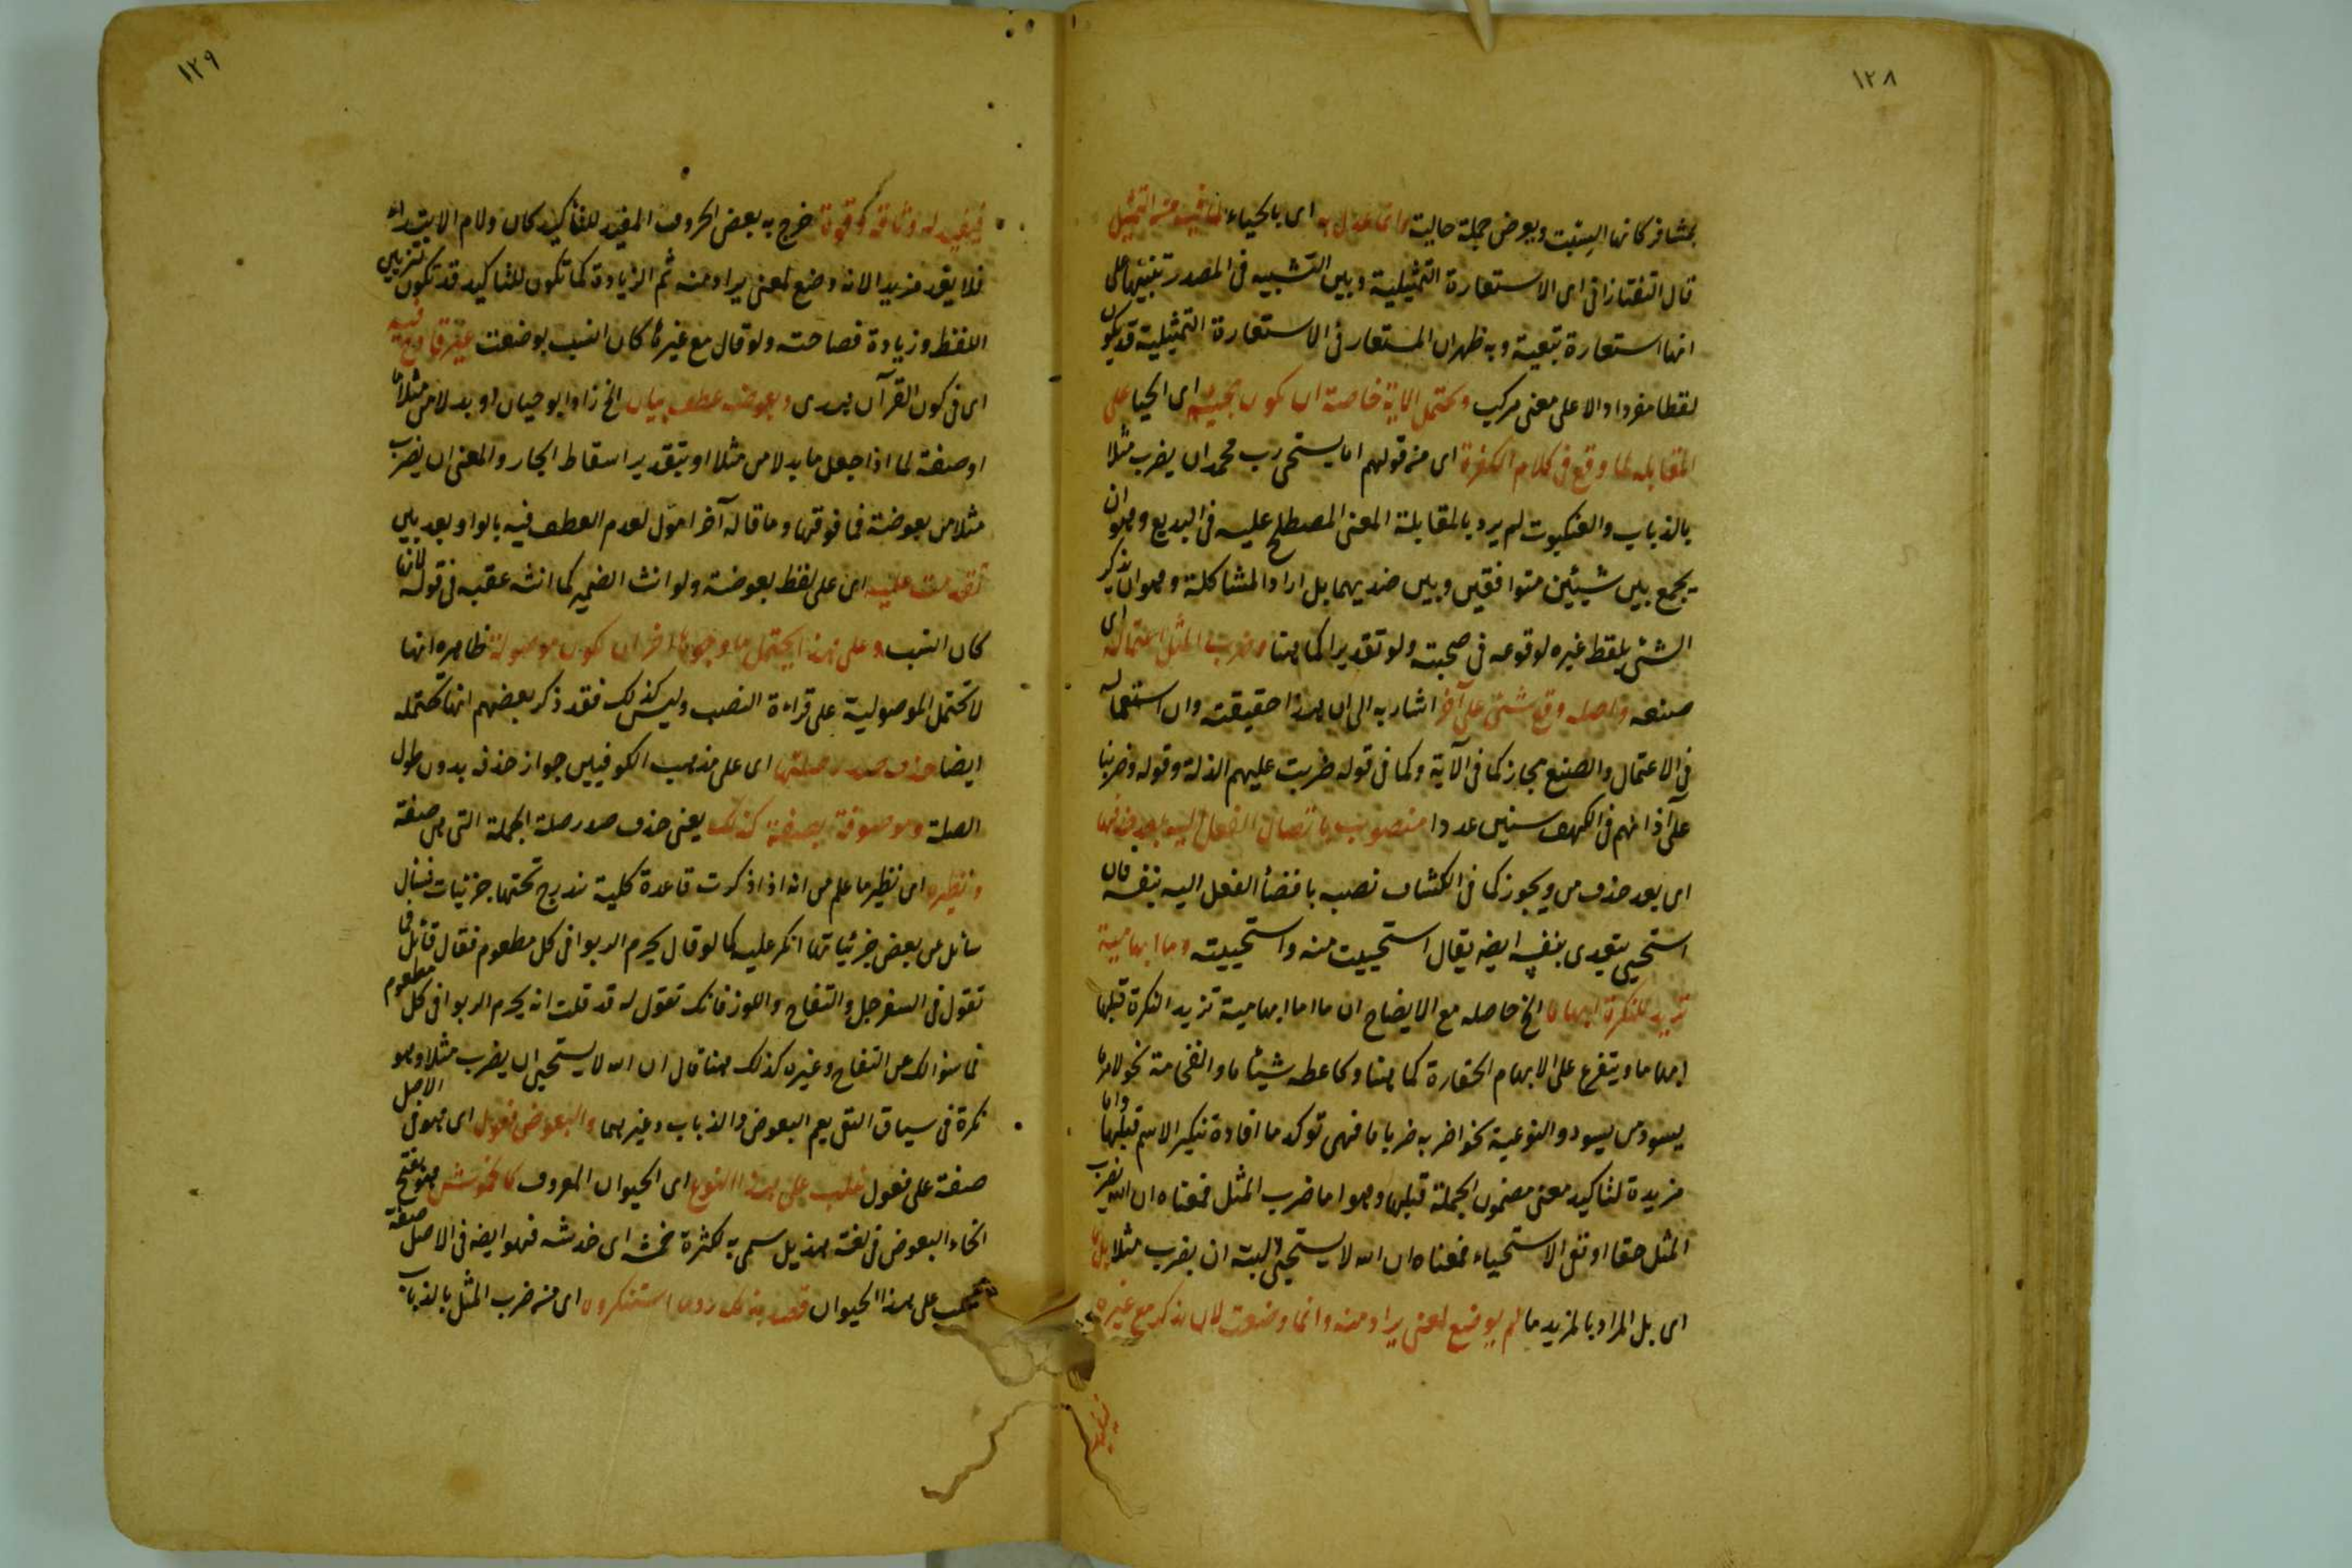 ١٢٨
بمشافر كانها السبت وبعوض جملة حالية وانما عدل به اى بالحياء لما فيه من التمثيل
قال التفتازانى اى الاستعارة التمثيلية وبين التشبيه فى المصدر تنبيها على
انها استعارة تبعية وبه ظهر ان المستعار فى الاستعارة التمثيلية قد يكون
لفظا مفردا دالا على معنى مركب وتحتمل الاية خاصة ان يكون مجيئه اى الحيا على
المقابلة لما وقع فى كلام الكفرة اى من قولهم اما يستحى رب محمد ان يضرب مثلا
بالذباب والعنكبوت لم يرد بالمقابلة المعنى المصطلح عليه فى البديع وهو ان
يجمع بين شيئين متوافقين وبين ضديهما بل اراد المشاكلة وهو ان يذكر
الشئ بلفظ غيره لوقوعه فى صحبته ولو تقديرا كما هنا وضرب المثل اعتماله اى
صنعه واصله وقع شئ على آخر اشار به الى ان هذا حقيقته وان استعماله
فى الاعتمال والصنع مجاز كما فى الآية وكما فى قوله ضربت عليهم الذلة وقوله فضربنا
على آذانهم فى الكهف سنين عددا منصوب بافضاء الفعل اليه بعد حذفها
اى بعد حذف من ويجوز كما فى الكشاف نصبه بافضأ الفعل اليه بنفسه فان
استحيى يتعدى بنفسه ايضه يقال استحييت منه واستحييته وما ابهامية
تزيد للنكرة ابهاما الخ حاصله مع الايضاح ان ما اما ابهامية تزيد النكرة قبلها
ابهاما ويتفرع على الابهام الحقارة كما هنا وكاعطه شيئا ما والفخامة نحو لامر ما
يسود من يسود والنوعية نحو اضربه ضربا ما فهى توكد ما افادة تنكير الاسم قبلها واما
مزيدة لتاكيد معنى مضمون الجملة قبلها وهو اما ضرب المثل فمعناه ان الله يضرب
المثل حقا او نفى الاستحياء فمعناه ان الله لا يستحيى البتة ان يضرب مثلا بل ما
اى بل المراد بالمزيد ما لم يوضع لمعنى يراد منه وانما وضعت لان يذكر مع غيره
١٢٩
فيفيد له وثاقة وقوة خرج به بعض الحروف المفيد للتأكيد كان ولام الابتداء
فلا يعد مزيدا لانه وضع لمعنى يراد منه ثم الزيادة كما تكون للتاكيد قد تكون لتزيين
اللفظ وزيادة فصاحته ولو قال مع غيرها كان انسب بوضعت غير قادح فيه
اى فى كون القرآن هدى وبعوضة عطف بيان الخ زاد ابو حيان او بدلا من مثلا
او صفة لما اذا جعل ما بدلا من مثلا او بتقدير اسقاط الجار والمعنى ان يضرب
مثلا من بعوضة فما فوقها وما قاله آخرا مؤل لعدم العطف فيه بالواو بعد بين
تقدمت عليه اى على لفظ بعوضة ولو انث الضمير كما انثه عقبه فى قوله لانها
كان انسب وعلى هذا يحتمل ما وجوها اخر ان تكون موصولة ظاهره انها
لا تحتمل الموصولية على قراءة النصب وليس كذلك فقد ذكر بعضهم انها تحتمله
ايضا حذف صدر صلتها اى على مذهب الكوفيين جواز حذفه بدون طول
الصلة وموصوفة بصفة كذلك يعنى حذف صدر صلة الجملة التى هى صفة
ونظيره اى نظير ما علم من انه اذا ذكرت قاعدة كلية تندرج تحتها جزئيات فسأل
سائل من بعض جزئياتها انكر عليه كما لو قال يحرم الربوا فى كل مطعوم فقال قائل فما
تقول فى السفرجل والتفاح واللوز فانك تقول له قد قلت انه يحرم الربوا فى كل مطعوم
فما سؤالك عن التفاح وغيره كذلك هنا قال ان الله لا يستحيى ان يضرب مثلا وهو
نكرة فى سياق النفى يعم البعوض والذباب وغيرهما والبعوض فعول اى هو فى الاصل
صفة على فعول غلب على هذا النوع اى الحيوان المعروف كالخموش هو بفتح
الخاء البعوض فى لغة هذيل سمى به لكثرة خمشه اى خدشه فهو ايضه فى الاصل صفة
على هذا الحيوان استنكروه اى من ضرب المثل بالذباب